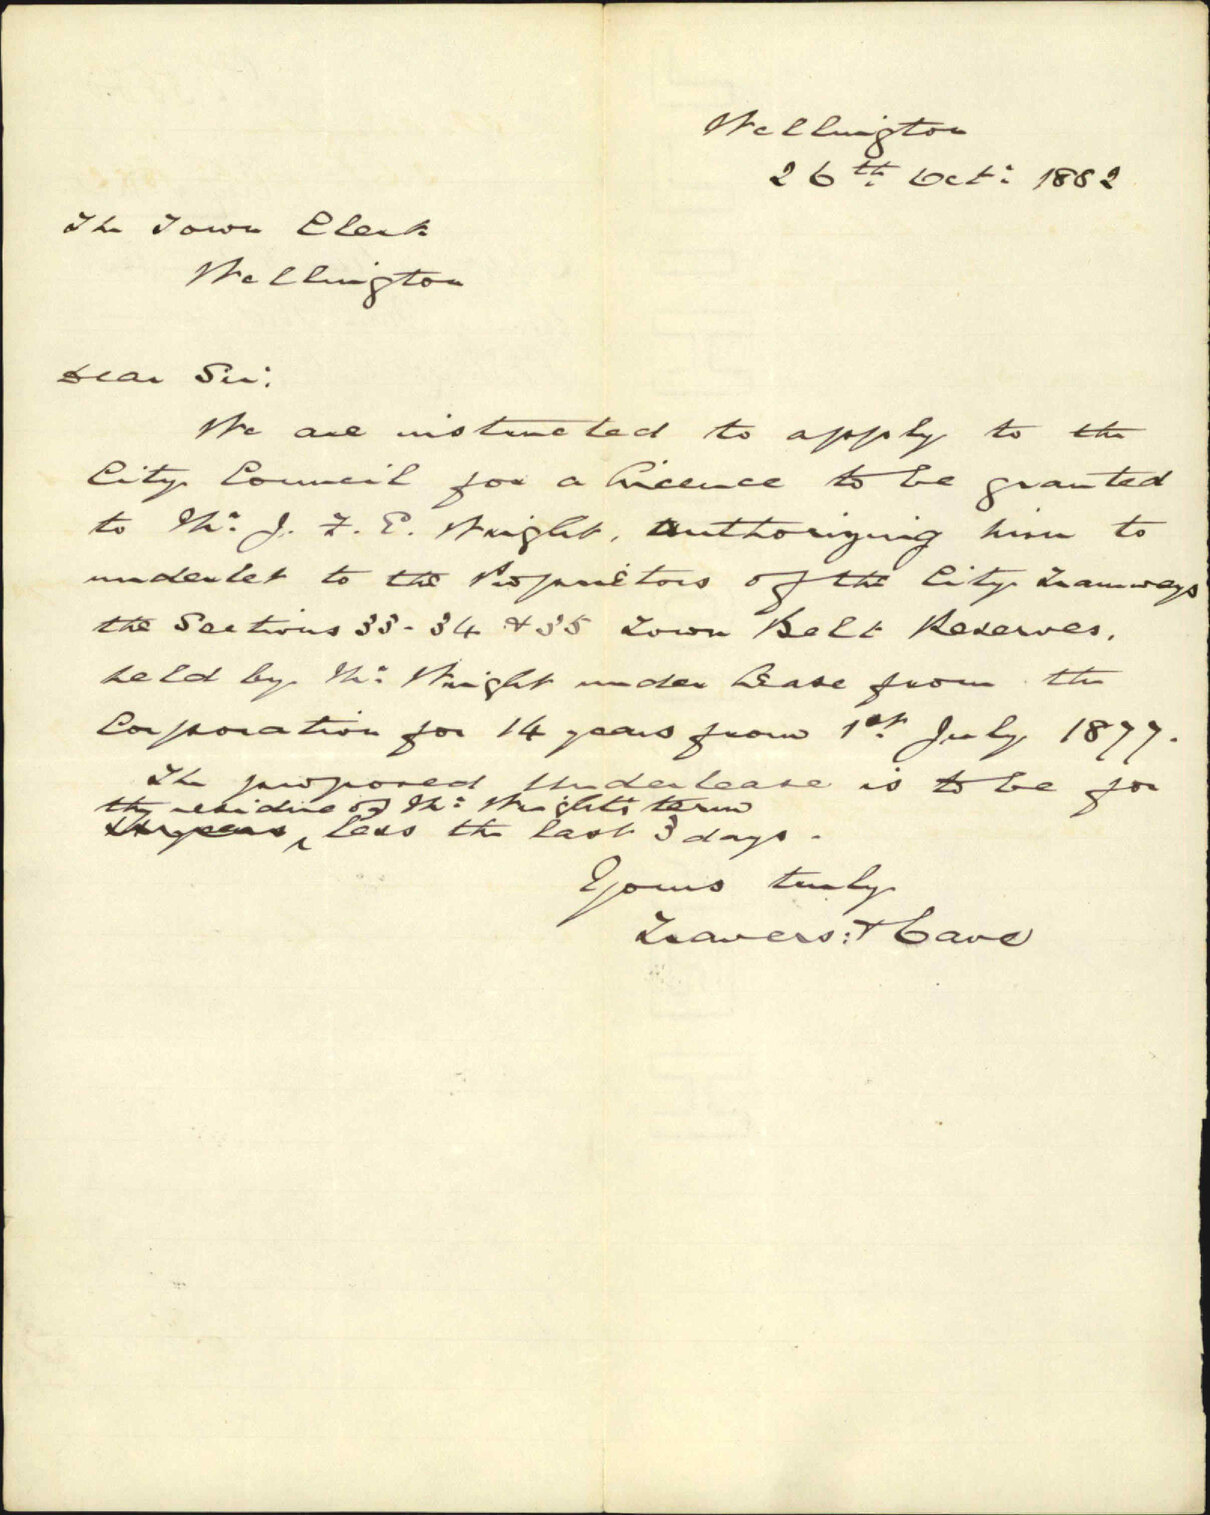 Wellington
26th Oct: 1882
The Town Clerk
Wellington
Dear Sir:
We are instructed to apply to the
City Council for a licence to be granted
to Mr: J. F. E. Wright, authorizing him to
underlet to the Proprietors of the City Tramways
the Sections 33-34 & 35 Town Belt Reserves,
held by Mr: Wright under lease from the
Corporation for 14 years from 1st July 1877.
The proposed Underlease is to be for
the residue of Mr: Wright's term
less the last 3 days.
Yours truly
Travers & Cave